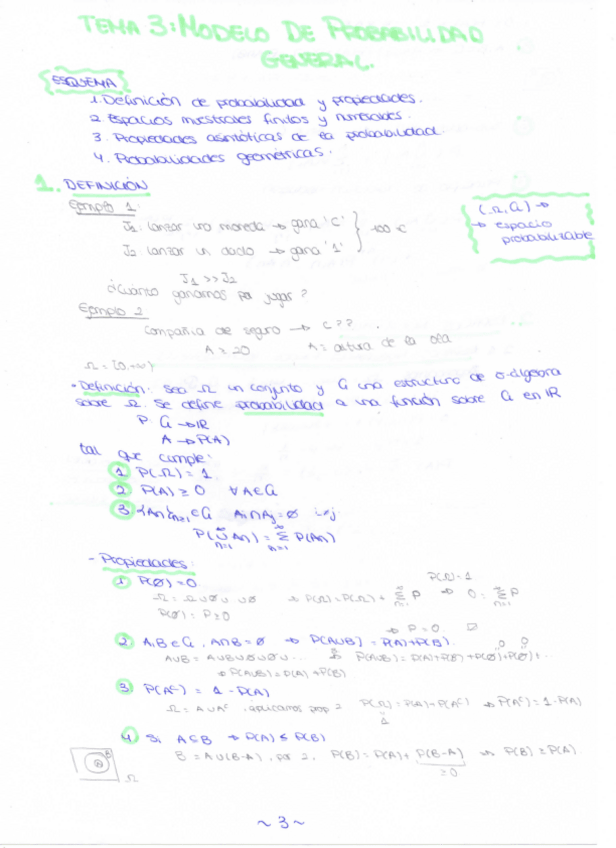 TEMA 3: MODELO DE PROBABILIDAD
GENERAL.
ESQUEMA
1. Definición de probabilidad y propiedades.
2. Espacios muestrales finitos y numerables.
3. Propiedades asintóticas de la probabilidad.
4. Probabilidades geométricas.
1. DEFINICIÓN
Ejemplo 1:
J₁: lanzar una moneda → gana 'C'
100 €
J₂: lanzar un dado → gana '1'
(Ω, a) →
→ espacio
probabilizable
J₁ >> J₂
¿Cuánto ganamos por jugar?
Ejemplo 2
Compañía de seguro → C??
A ≥ 20 A = altura de la ola
Ω = [0,+∞)
• Definición: sea Ω un conjunto y a una estructura de σ-álgebra
sobre Ω. Se define probabilidad a una función sobre a en IR
P: a → IR
A → P(A)
tal que cumple:
1. P(Ω) = 1
2. P(A) ≥ 0 ∀A∈a
3. {An}n≥1 ∈ a Ai∩Aj = ∅ i≠j
P(∪An) = Σ P(An)
- Propiedades:
1. P(∅) = 0
P(Ω)=1
Ω = Ω∪∅∪ ∪∅ ⇒ P(Ω) = P(Ω) + Σ P ⇒ 0 = Σ P
P(∅) = P ≥ 0
⇒ P = 0
2. A,B∈a, A∩B = ∅ ⇒ P(A∪B) = P(A)+P(B).
A∪B = A∪B∪∅∪∅∪... P(A∪B) = P(A)+P(B)+P(∅)+P(∅)+...
⇒ P(A∪B) = P(A)+P(B)
3. P(Aᶜ) = 1 - P(A)
Ω = A∪Aᶜ, aplicamos prop 2 P(Ω) = P(A)+P(Aᶜ) ⇒ P(Aᶜ) = 1-P(A)
1
4. Si A⊆B ⇒ P(A) ≤ P(B)
B = A∪(B-A), por 2, P(B) = P(A) + P(B-A) ⇒ P(B) ≥ P(A)
≥0
Ω
~ 3 ~